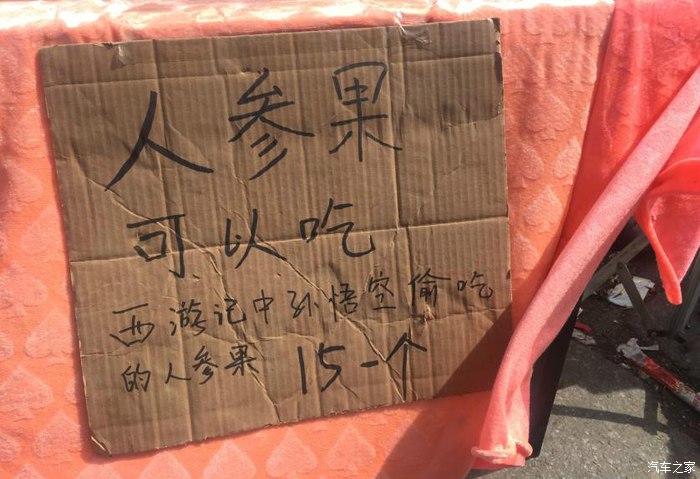 人参果
可以吃
西游记中孙悟空偷吃
的人参果 15一个
汽车之家